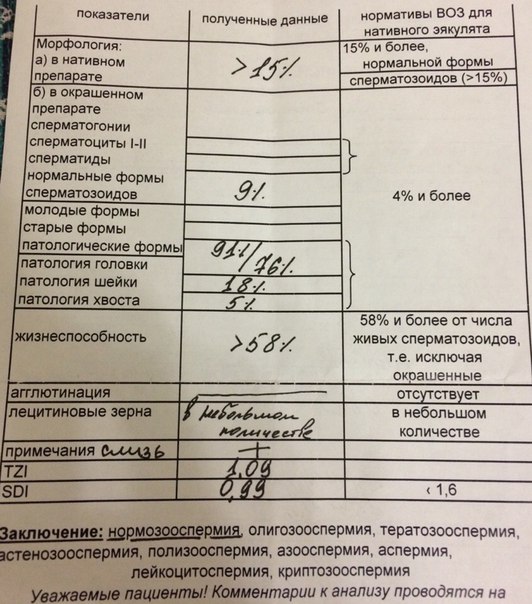 показатели полученные данные нормативы ВОЗ для
нативного эякулята
Морфология:
а) в нативном
препарате
>15%
15% и более,
нормальной формы
сперматозоидов (>15%)
б) в окрашенном
препарате
сперматогонии
сперматоциты I-II
сперматиды
нормальные формы
сперматозоидов 9% 4% и более
молодые формы
старые формы
патологические формы 91%/76%
патология головки
патология шейки 18%
патология хвоста 5%
жизнеспособность >58%
58% и более от числа
живых сперматозоидов,
т.е. исключая
окрашенные
агглютинация — отсутствует
лецитиновые зерна в небольшом
количестве
в небольшом
количестве
примечания слизь +
TZI 1,09
SDI 0,99 ‹ 1,6
Заключение: нормозооспермия, олигозооспермия, тератозооспермия,
астенозооспермия, полизооспермия, азооспермия, аспермия,
лейкоцитоспермия, криптозооспермия
Уважаемые пациенты! Комментарии к анализу проводятся на